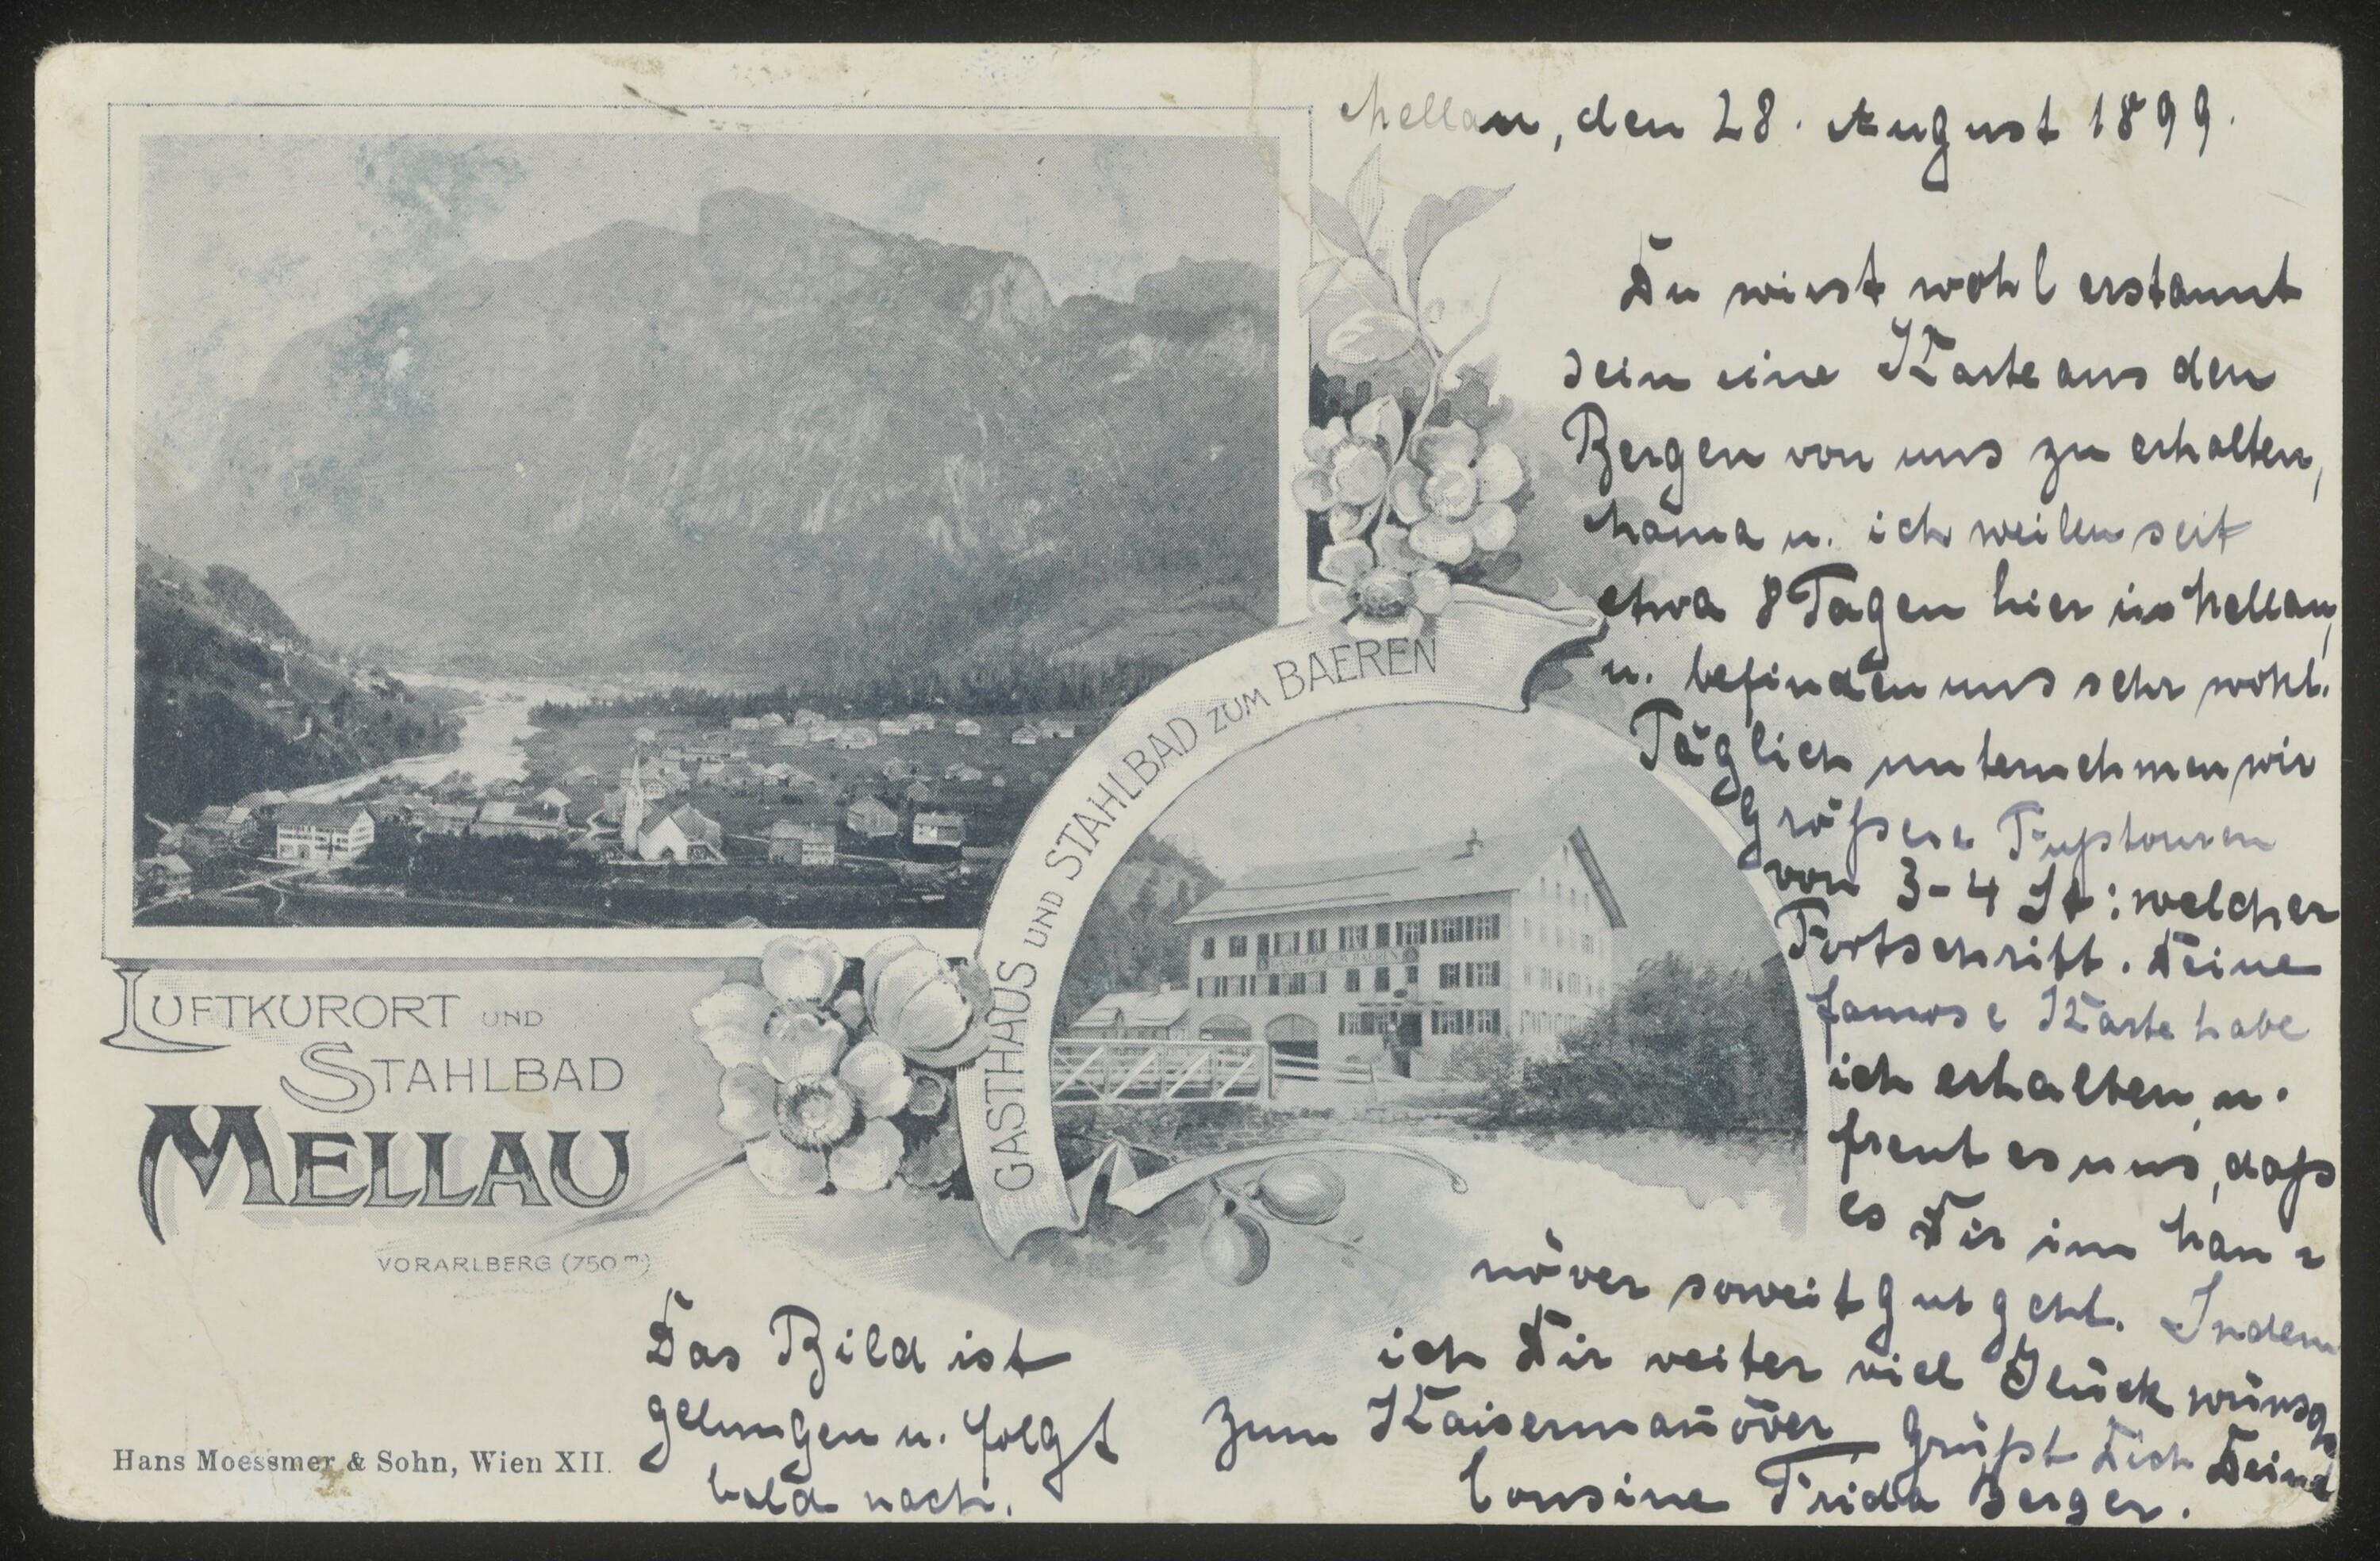 Mellau, den 28. August 1899.
Du wirst wohl erstaunt
sein eine Karte aus den
Bergen von uns zu erhalten,
Mama u. ich weilen seit
etwa 8 Tagen hier in Mellau,
u. befinden uns sehr wohl.
Täglich unternehmen wir
größere Fußtouren
von 3-4 St: welcher
Fortschritt. Deine
famose Karte habe
ich erhalten u.
freut es uns, daß
es Dir im Man=
növer soweit gut geht. Indem
ich Dir weiter viel Glück wünsch
zum Kaisermanöver grüßt Dich Deine
Cousine Frida Berger.
Das Bild ist
gelungen u. folgt
bald nach.
GASTHAUS UND STAHLBAD ZUM BAEREN
LUFTKURORT UND
STAHLBAD
MELLAU
VORARLBERG (750 m)
Hans Moessmer & Sohn, Wien XII.